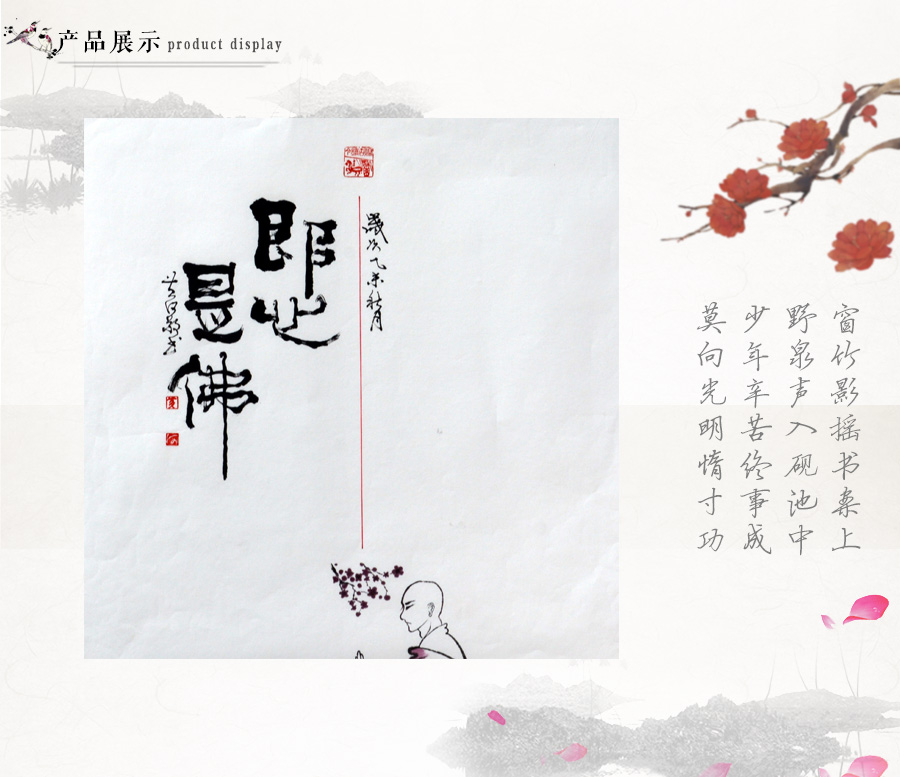 产品展示 product display
歲次乙未秋月
即心
是佛
窗竹影摇书案上
野泉声入砚池中
少年辛苦终事成
莫向光明惰寸功